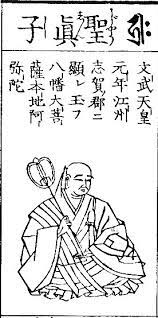 聖眞子
文武天皇
元年江州
志賀郡ニ
顕レ玉フ
八幡大菩
薩本地阿
弥陀